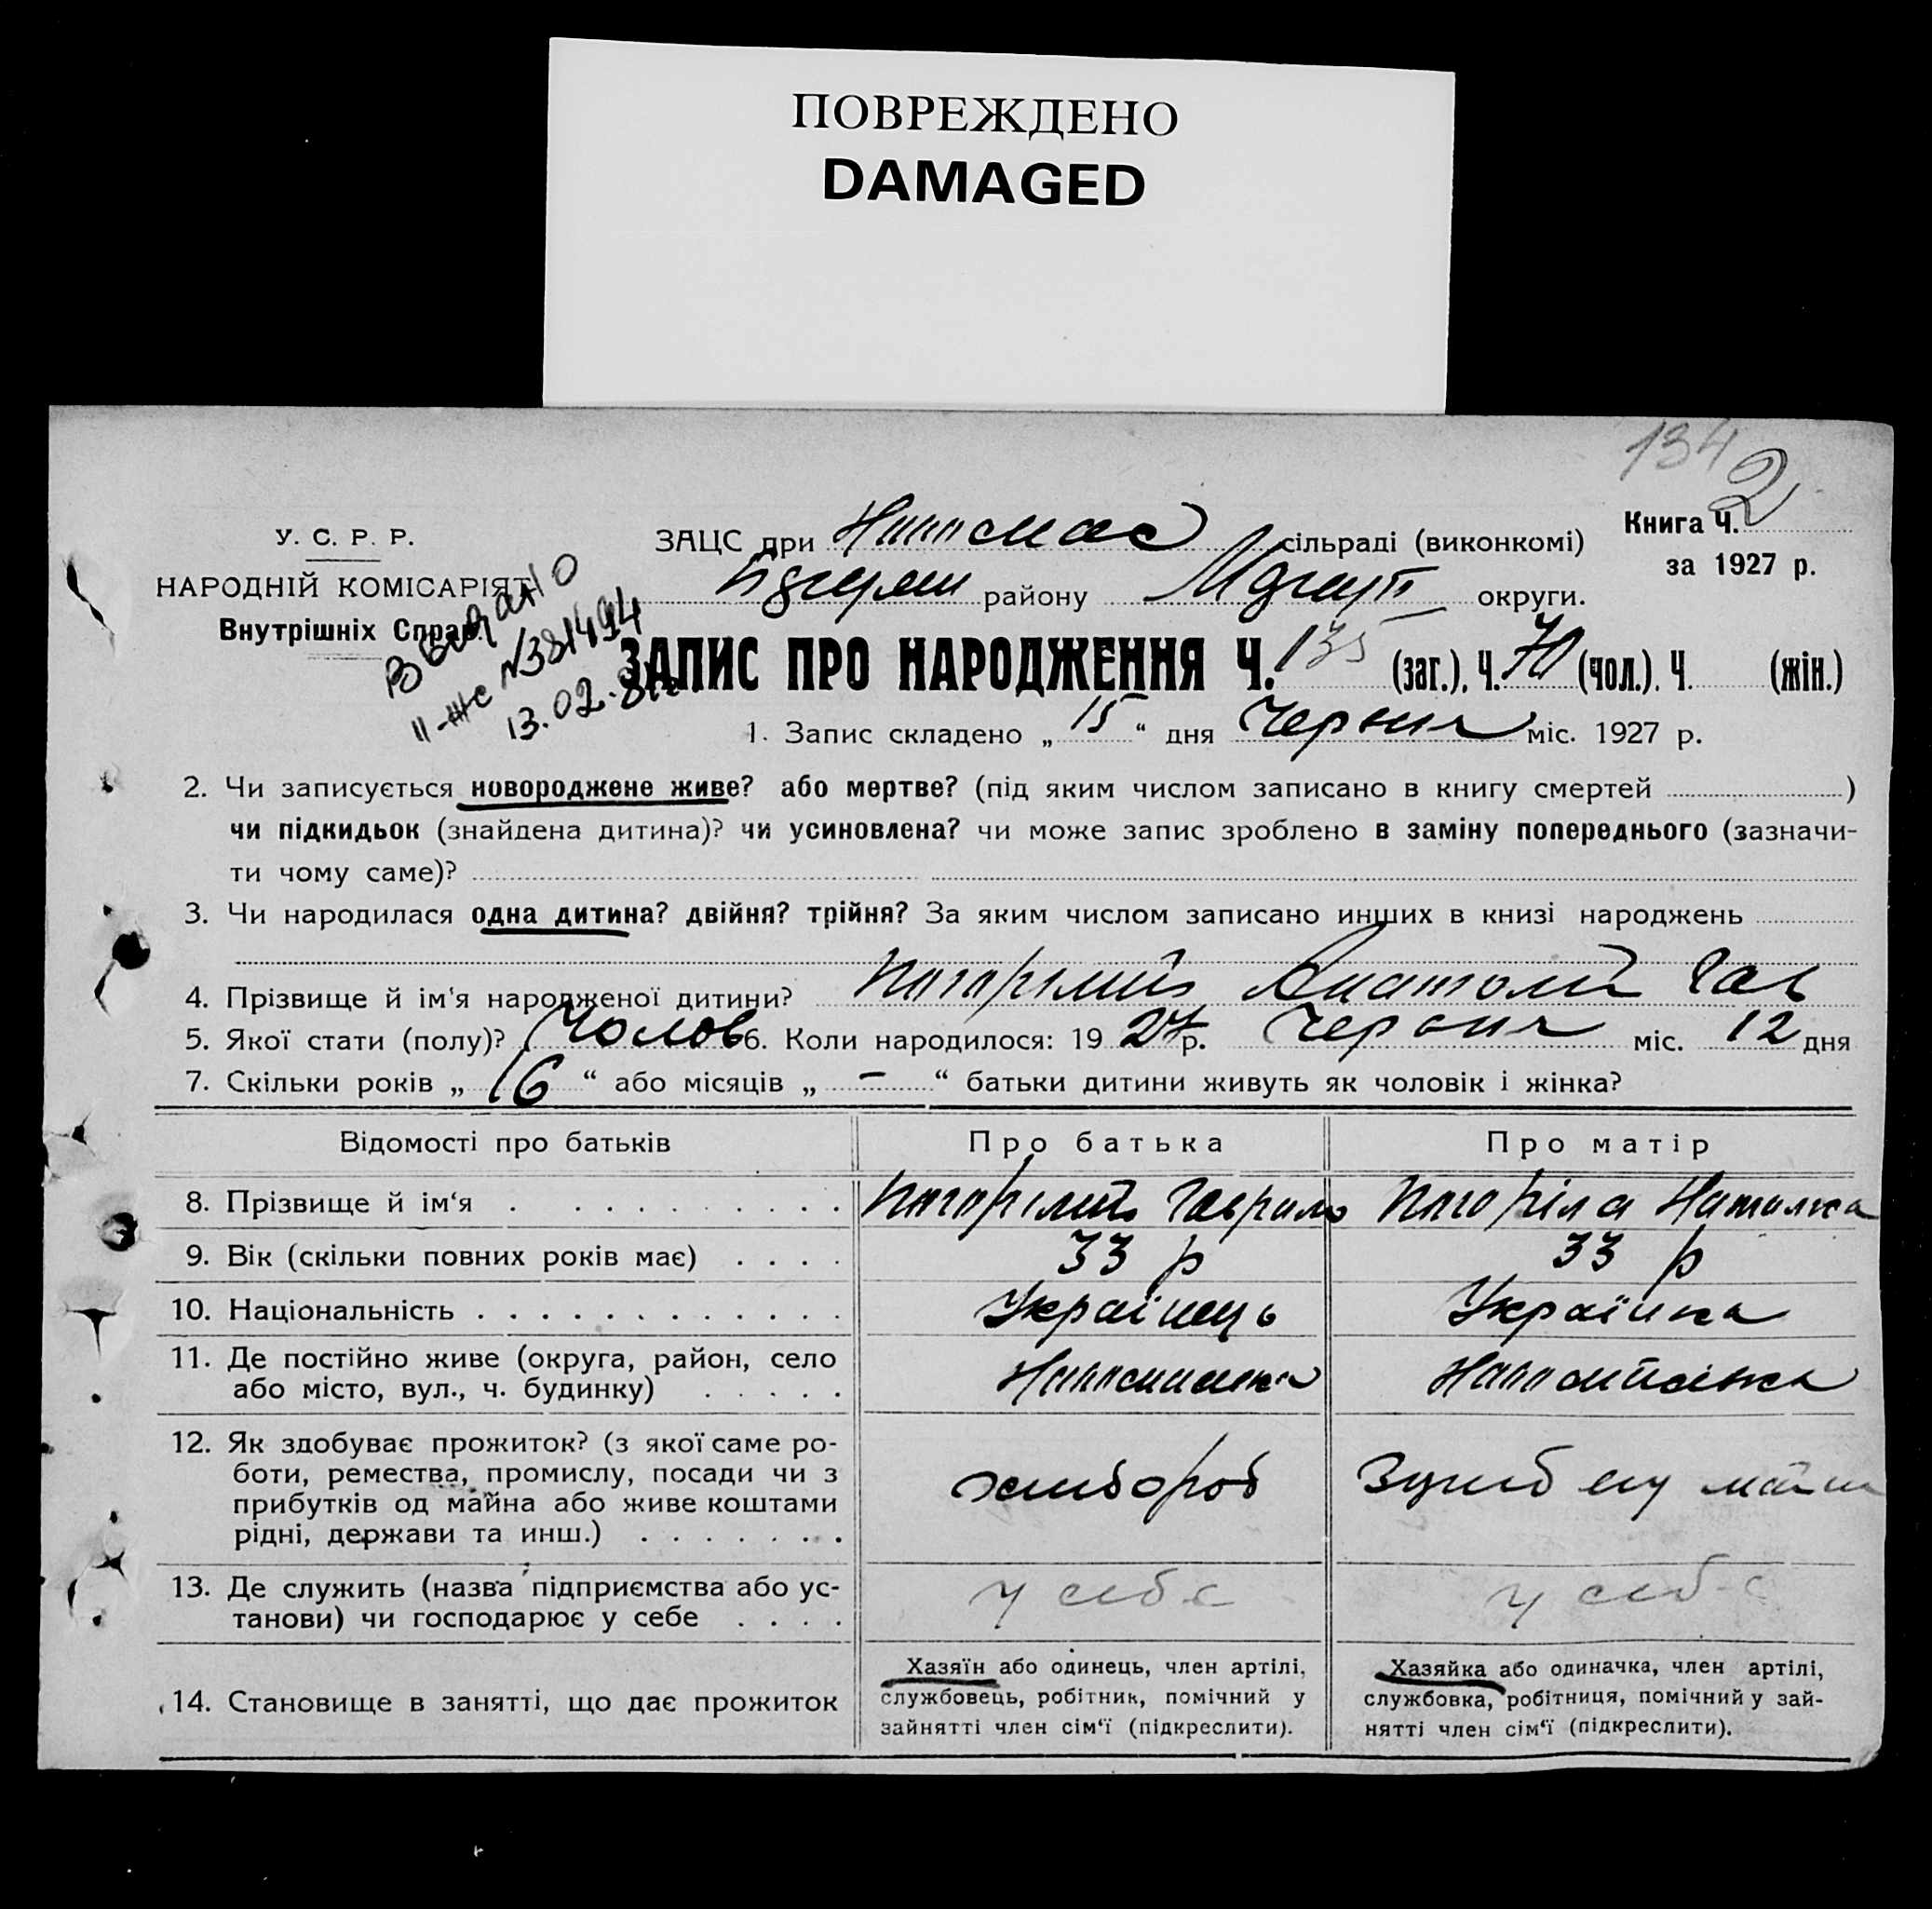 ПОВРЕЖДЕНО
DAMAGED
134
2
У. С. Р. Р.
НАРОДНІЙ КОМІСАРІЯТ
Внутрішніх Справ.
Видано
II-жс №381494
13.02.
ЗАЦС при сільраді (виконкомі)
району округи.
Книга Ч.
за 1927 р.
ЗАПИС ПРО НАРОДЖЕННЯ Ч. 135 (заг.), Ч. 70 (чол.). Ч. (жін.)
1. Запис складено „ 15 “ дня Червня міс. 1927 р.
2. Чи записується новороджене живе? або мертве? (під яким числом записано в книгу смертей )
чи підкидьок (знайдена дитина)? чи усиновлена? чи може запис зроблено в заміну попереднього (зазначи-
ти чому саме)?
3. Чи народилася одна дитина? двійня? трійня? За яким числом записано инших в книзі народжень
4. Прізвище й ім'я народженої дитини? Погорілий Анатолій Гав
5. Якої стати (полу)? Чолов 6. Коли народилося: 19 27 р. Червня міс. 12 дня
7. Скільки років „ 16 “ або місяців „ — “ батьки дитини живуть як чоловік і жінка?
Відомості про батьків Про батька Про матір
8. Прізвище й ім‘я Погорілий Гаврило Погоріла Наталка
9. Вік (скільки повних років має) 33 р 33 р
10. Національність Українець Українка
11. Де постійно живе (округа, район, село
або місто, вул., ч. будинку)
12. Як здобуває прожиток? (з якої саме ро-
боти, ремества, промислу, посади чи з
прибутків од майна або живе коштами
рідні, держави та инш.) хлібороб
13. Де служить (назва підприємства або ус-
танови) чи господарює у себе у себе у себе
14. Становище в занятті, що дає прожиток
Хазяїн або одинець, член артілі,
службовець, робітник, помічний у
зайнятті член сім‘ї (підкреслити).
Хазяйка або одиначка, член артілі,
службовка, робітниця, помічний у зай-
нятті член сім‘ї (підкреслити).